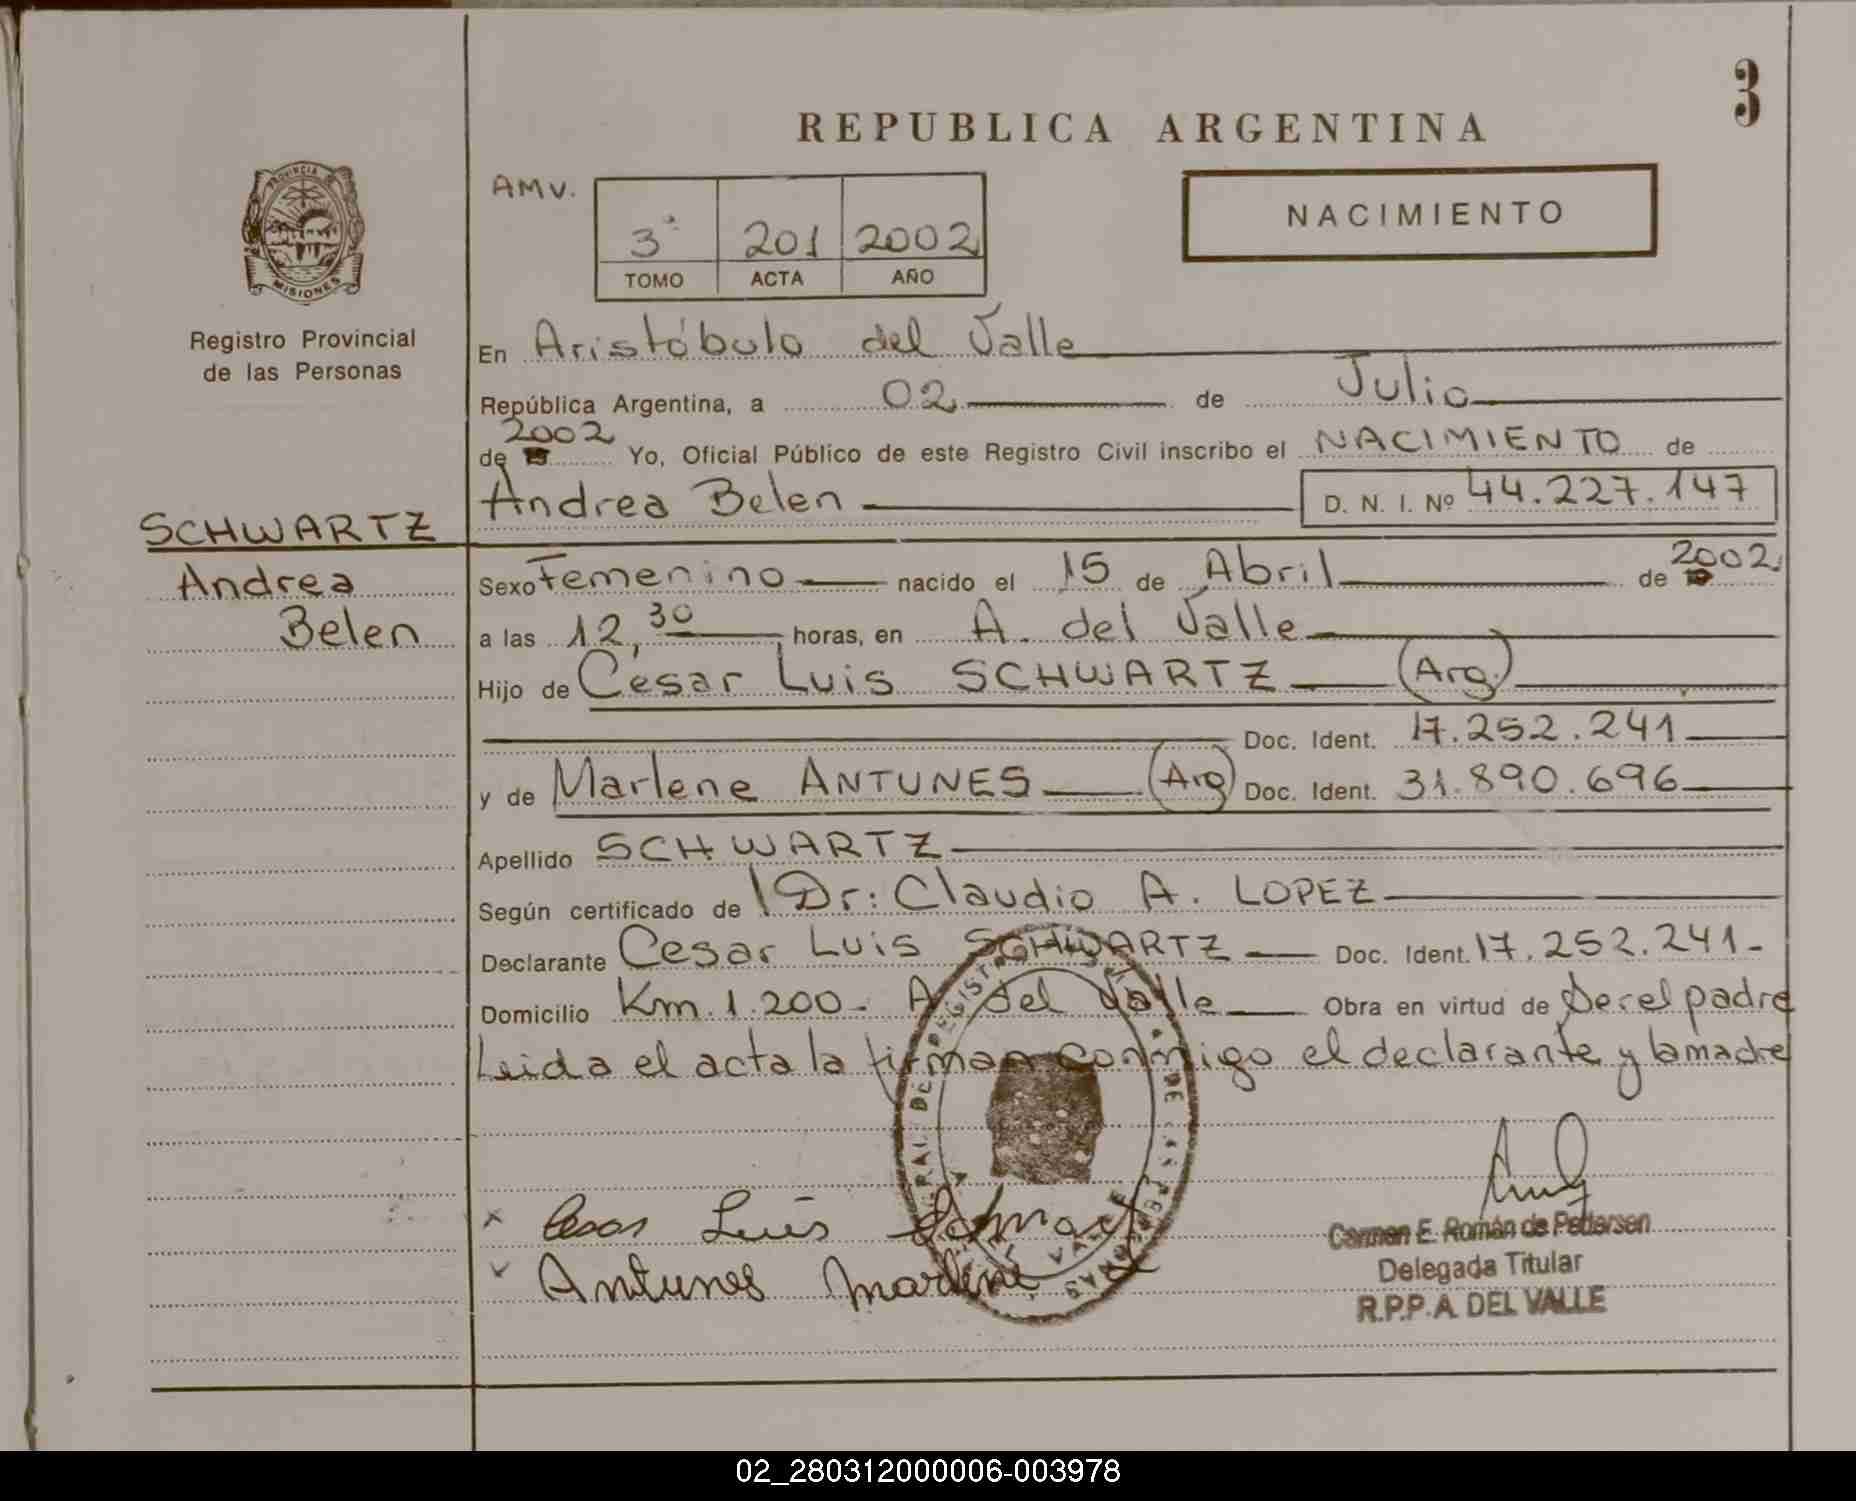 3
REPUBLICA ARGENTINA
PROVINCIA DE
MISIONES
Registro Provincial
de las Personas
AMV.
3º 201 2002
TOMO ACTA AÑO
NACIMIENTO
En Aristóbulo del Valle
República Argentina, a 02 de Julio
2002
de 19 Yo, Oficial Público de este Registro Civil inscribo el NACIMIENTO de
Andrea Belen D. N. I. Nº 44.227.147
SCHWARTZ
Andrea
Belen
Sexo Femenino nacido el 15 de Abril de 2002
a las 12,30 horas, en A. del Valle
Hijo de César Luis SCHWARTZ (Arg.)
Doc. Ident. 17.252.241
y de Marlene ANTUNES (Arg) Doc. Ident. 31.890.696
Apellido SCHWARTZ
Según certificado de Dr: Claudio A. LOPEZ
Declarante Cesar Luis SCHWARTZ Doc. Ident. 17.252.241-
Domicilio Km. 1.200- A del Valle Obra en virtud de Ser el padre
Leida el acta la firman conmigo el declarante y la madre
x Cesar Luis
Antunes Marlene
Carmen E. Román de Pedersen
Delegada Titular
R.P.P.A. DEL VALLE
02_280312000006-003978